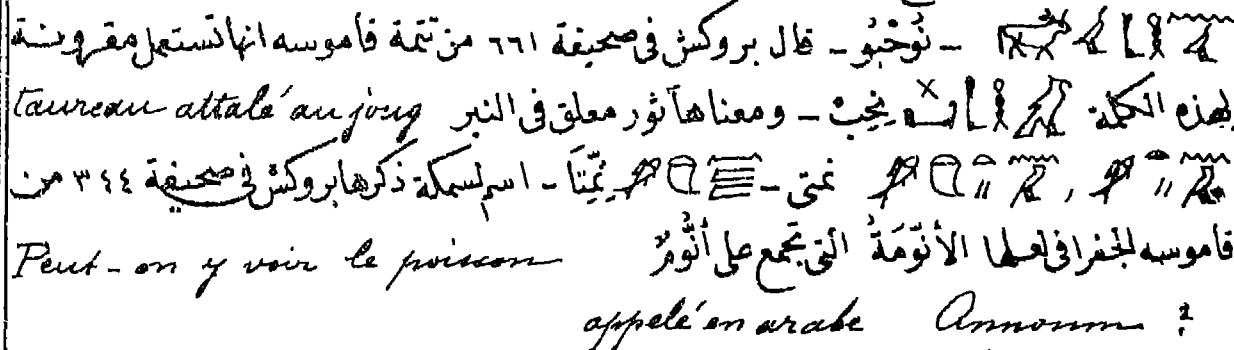 ـ نُوحْبُو ـ قال بروكش فى صحيفة ٦٦١ من تتمة قاموسه انها تستعمل مقرونة
بهذه الكلمة نِحِبْ ـ ومعناها ثور معلق فى النير taureau attalé au joug
ـ اسم لسمكة ذكرها بروكش فى صحيفة ٣٤٤ من
قاموسه الجغرافى لعلها الأنّومَةُ التى تجمع على أنُّومٌ Peut-on y voir le poisson
appelé en arabe Annoum ?